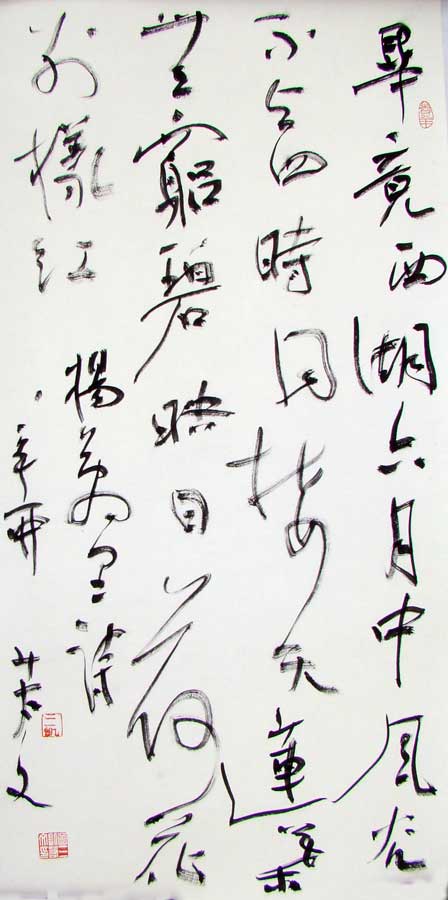 畢竟西湖六月中風光
不与四時同接天蓮葉
無窮碧映日荷花
別樣紅
楊萬里詩
辛卯
文